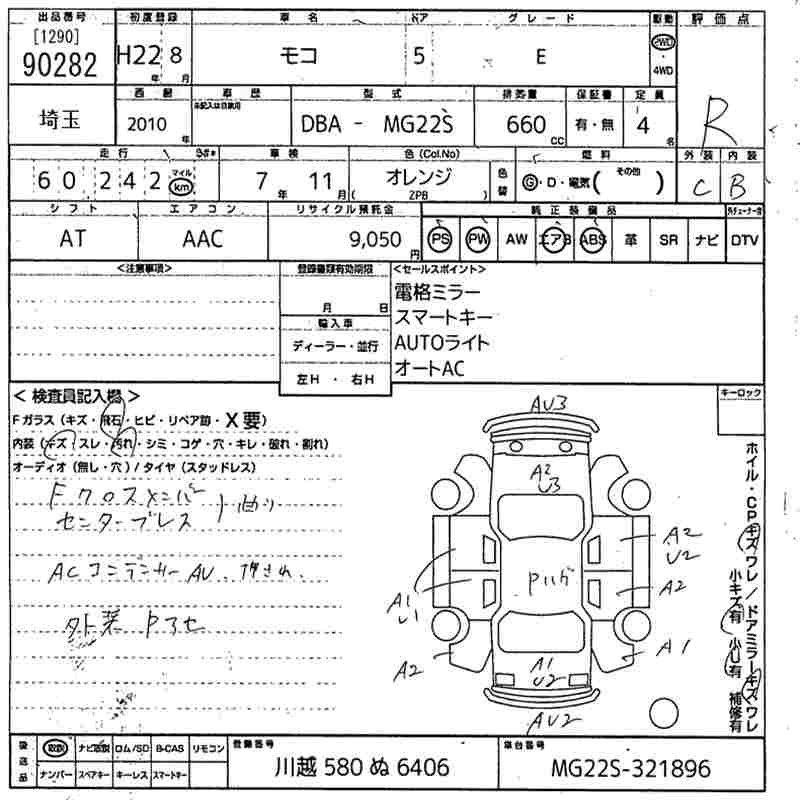 出品番号 初度登録 車名 ドア グレード 駆動 評価点
[1290]
90282 H22 年 8 月 モコ 5 E 2WD・4WD R
埼玉 西暦 車歴 型式 排気量 保証書 定員
2010 年 ※記入は自家用 DBA - MG22S 660 CC 有・無 4 名 外装 内装
走行 車検 色(Col.No) 燃料 C B
60242 マイル km 7 年 11 月 オレンジ ( ZPB ) 色替 G・D・電気( その他 )
シフト エアコン リサイクル預託金 純正装備品
AT AAC 9,050 円 PS PW AW エアB ABS 革 SR ナビ DTV
<注意事項> 登録書類有効期限 <セールスポイント>
月 日
電格ミラー
スマートキー
AUTOライト
オートAC
輸入車
ディーラー・並行
左H ・ 右H
<検査員記入欄> キーロック
Fガラス(キズ・飛石・ヒビ・リペア跡・X要)
内装(キズ・スレ・汚れ・シミ・コゲ・穴・キレ・破れ・割れ)
オーディオ(無し・穴)/タイヤ(スタッドレス)
Fクロスメンバー
センターブレス
ACコンデンサーAU
外装
AU3
A2
U3
A2
U2
A2
A1
U1
A2
A1
A1
U2
AU2
ホイル・CPキズワレ/ドアミラーキズワレ
小キズ有 小U有 補修有
後送品 取説 ナビ取説 ロム/SD B-CAS リモコン 登録番号 車台番号
ナンバー スペアキー キーレス スマートキー 川越 580 ぬ 6406 MG22S-321896